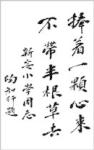 捧着一颗心来
不带半根草去
新安小学同志
陶知行题